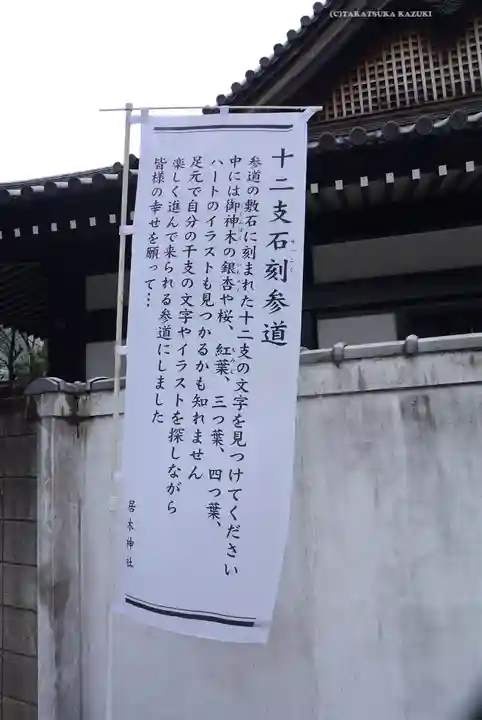 (C)TAKATSUKA KAZUKI
十二支石刻参道
参道の敷石に刻まれた十二支の文字を見つけてください
中には御神木の銀杏や桜、紅葉、三つ葉、四つ葉、
ハートのイラストも見つかるかも知れません
足元で自分の干支の文字やイラストを探しながら
楽しく進んで来られる参道にしました
皆様の幸せを願って…
居木神社